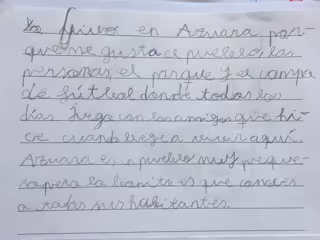 Yo vivo en Azuara por-
que me gusta el pueblo, las
personas, el parque y el campo
de fútbol donde todos los
días juego con los amigos que hi-
ce cuando llegé a vivir aquí.
Azuara es un pueblo muy peque-
ño pero lo bonito es que conoces
a todos sus habitantes.